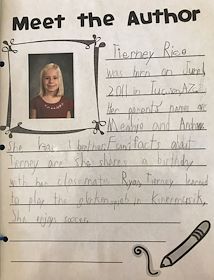 Meet the Author
Tierney Rice
was born on June
2011 in Tucson AZ.
Her parents names are
and Andrew.
She has 1 brother. Fun facts about
Tierney are She shares a birthday
with her classmate Ryan. Tierney learned
to play the in
She enjoys soccer.